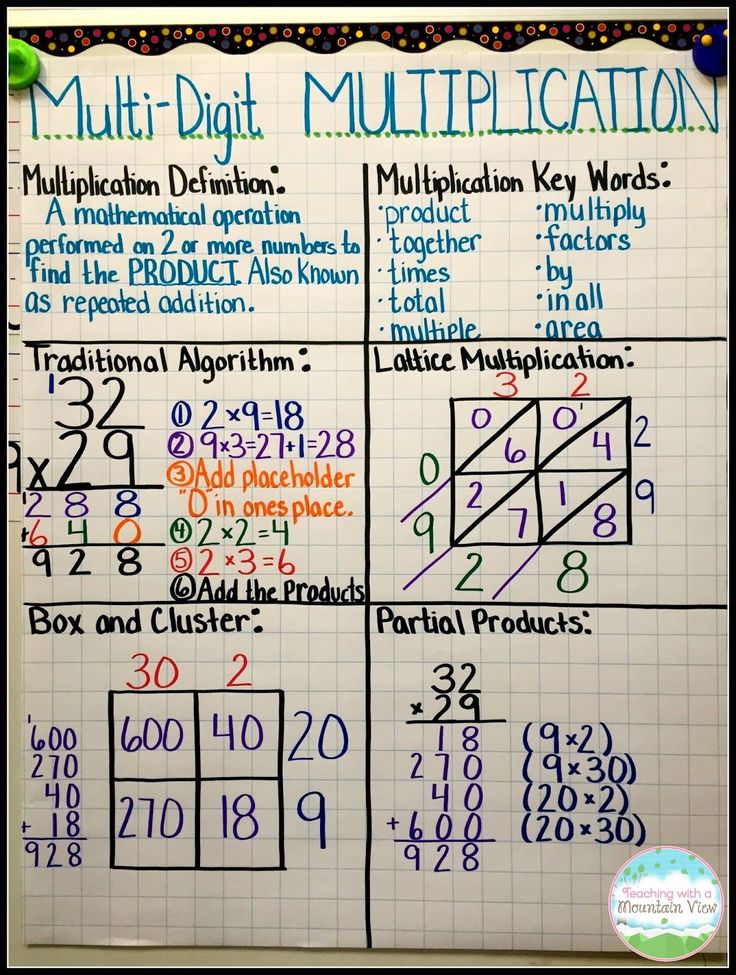 Multi-Digit MULTIPLICATION
Multiplication Definition:
A mathematical operation
performed on 2 or more numbers to
find the PRODUCT. Also known
as repeated addition.
Multiplication Key Words:
·product ·multiply
·together ·factors
·times ·by
·total ·in all
·multiple ·area
Traditional Algorithm:
1
32
x29
1
288
+640
928
① 2×9=18
② 9×3=27+1=28
③ Add placeholder
"0" in ones place.
④ 2×2=4
⑤ 2×3=6
⑥ Add the Products
Lattice Multiplication:
3 2
0 0 1 2
6 4
0
2 1 9
7 8
9
2 8
Box and Cluster:
30 2
600 40 20
270 18 9
1
600
270
40
+ 18
928
Partial Products:
32
× 29
18 (9×2)
270 (9×30)
40 (20×2)
+600 (20×30)
928
Teaching with a
Mountain View